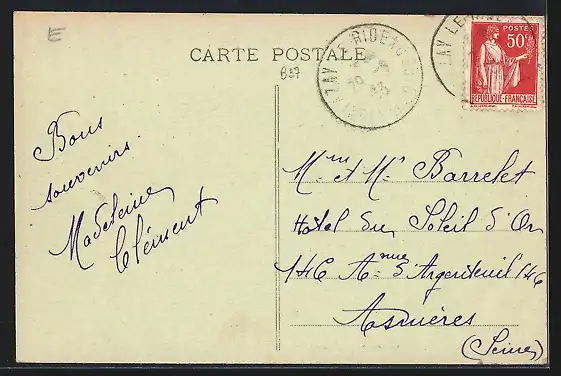 E
CARTE POSTALE
B97
AZAY LE RIDEAU
POSTES
50c
REPUBLIQUE-FRANÇAISE
Bons
souvenirs.
Madeleine
Clément
Mme et Mr Barrelet
Hôtel du Soleil d'Or
146 Anue d'Argenteuil 146
Asnières
(Seine)